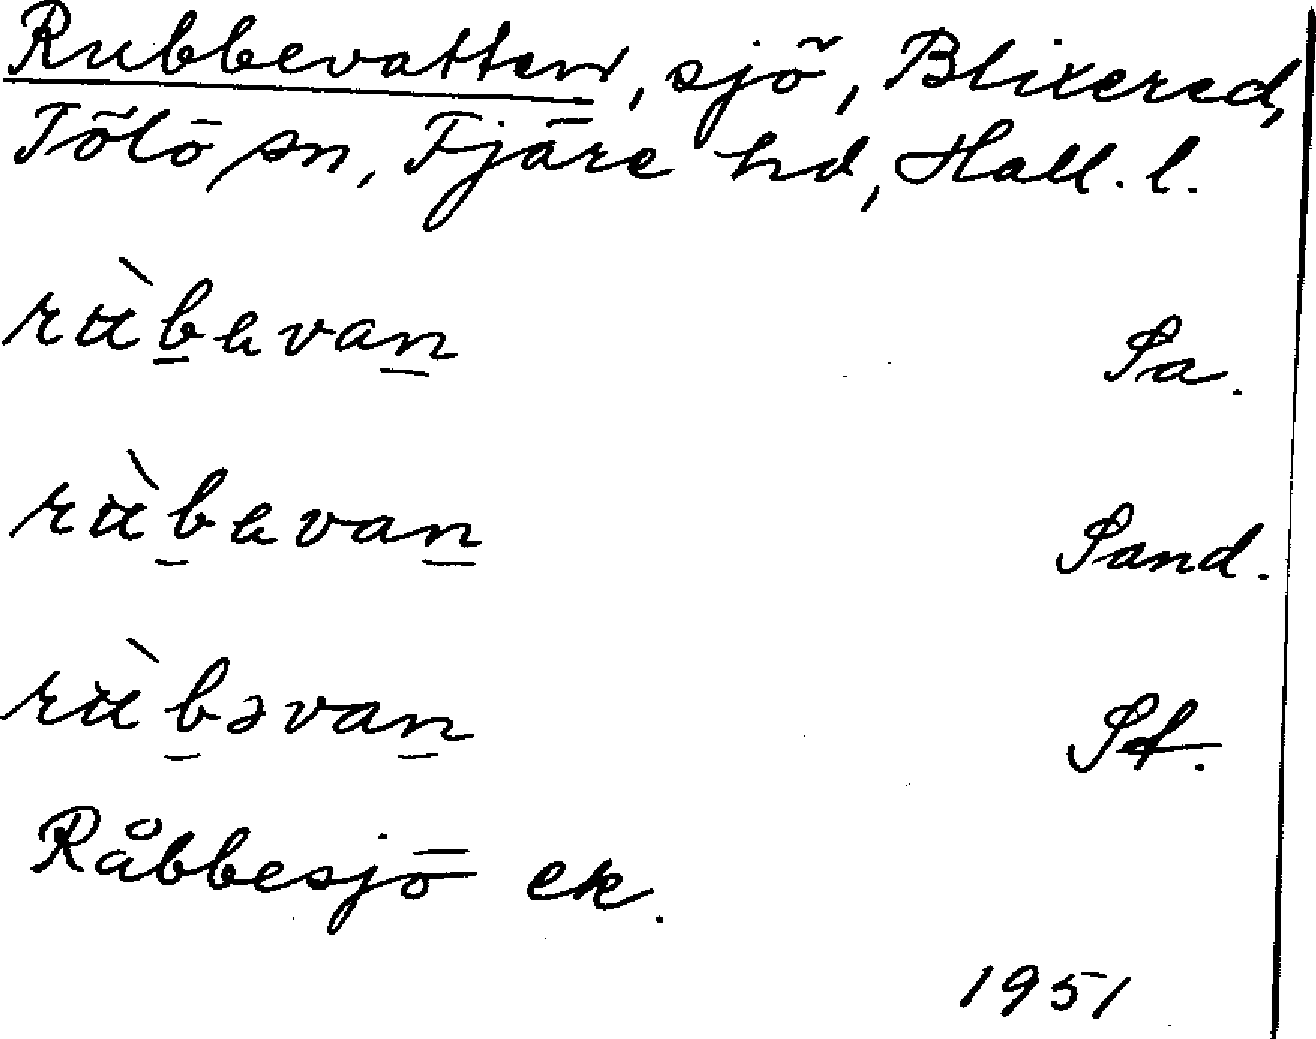 Rubbevatten, sjö, Blixered,
Tölö sn, Fjäre hd, Hall. l.
rùbavan Sa.
rùbavan Sand.
rùbəvan St.
Råbbesjö ek.
1951